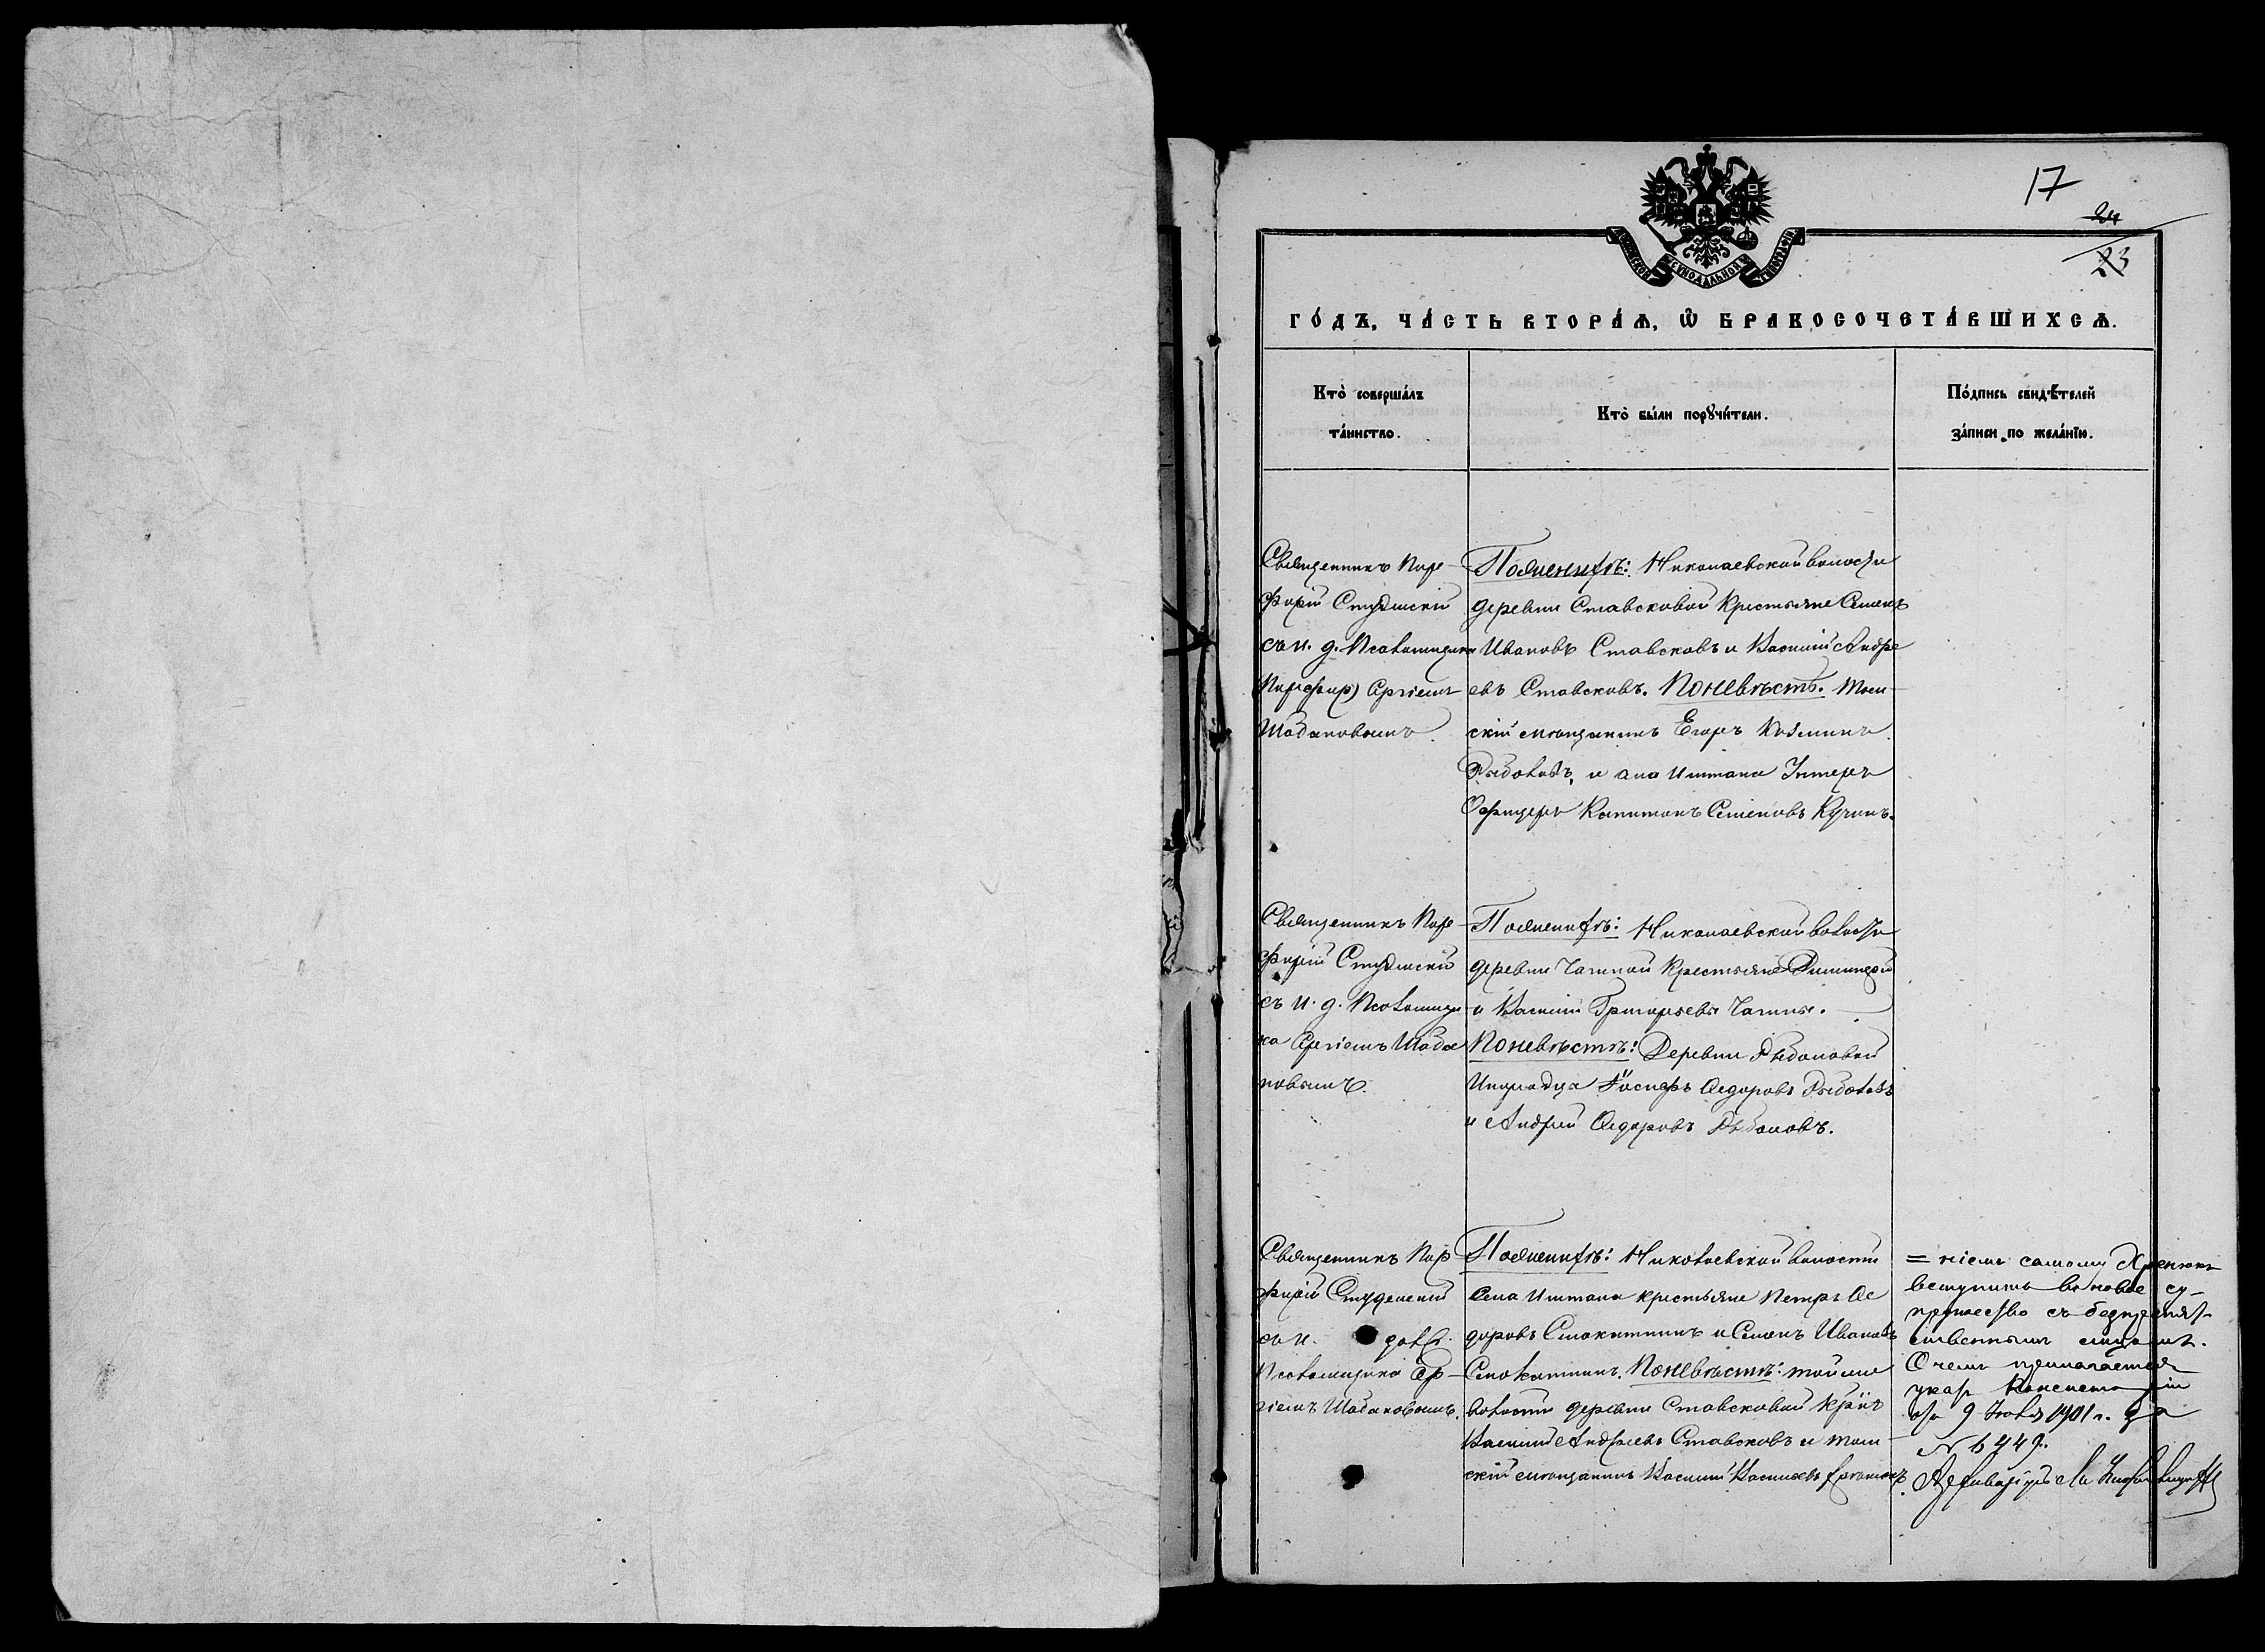 17
24
23
МОСКОВСКОЙ СѴНОДАЛЬНОЙ ТИПОГРАФІИ
ГО́ДЪ, ЧА́СТЬ ВТОРА́Ѧ, Ѽ БРАКОСОЧЕТА́ВШИХСѦ.
Кто̀ соверша́лъ
та́инство.
Кто̀ бы́ли порꙋчи́тели.
По́дпись свидѣ́телей
за́писи по жела́нїю.
Священникъ Пор-
фирій Студенскій
съ и. д. Псаломщика
Сергіемъ
Шабановымъ.
По женихѣ: Николаевской волости
деревни Ставсковой крестьяне Семенъ
Ивановъ Ставсковъ и Василій Андре
евъ Ставсковъ. По невѣстѣ. Том-
скій мѣщанинъ Егоръ Козьминъ
Рыболовъ, и села Иштана Унтеръ
Офицеръ Капитонъ Семеновъ Кучинъ.
Священникъ Пор-
фирій Студенскій
съ и. д. Псаломщи
ка Сергіемъ Шаба
новымъ.
По женихѣ: Николаевской волости
деревни Чагиной Крестьяне Димитрій
и Василій Григорьевы Чагины.
По невѣстѣ: Деревни Рыболовой
Инородцы Іосифъ Ѳедоровъ Рыболовъ
и Андрей Ѳедоровъ Рыболовъ.
Священникъ Пор
фирій Студенскій
съ и. долж.
Псаломщика Сер-
гіемъ Шабановымъ.
По женихѣ: Николаевской волости
Села Иштана крестьяне Петръ Ѳе
доровъ Смокатнинъ и Семенъ Ивановъ
Смокатнинъ. По невѣстѣ: той же
волости деревни Ставсковой кр-нъ
Василій Андреевъ Ставсковъ и Том-
скій мѣщанинъ Василій Васильевъ
= ніемъ самому
вступить въ новое су-
пружество съ безпрепят-
ственнымъ лицомъ.
О чемъ прилагается
указъ Консисторіи
отъ 9 Іюля 1901 г. за
№ 6449.